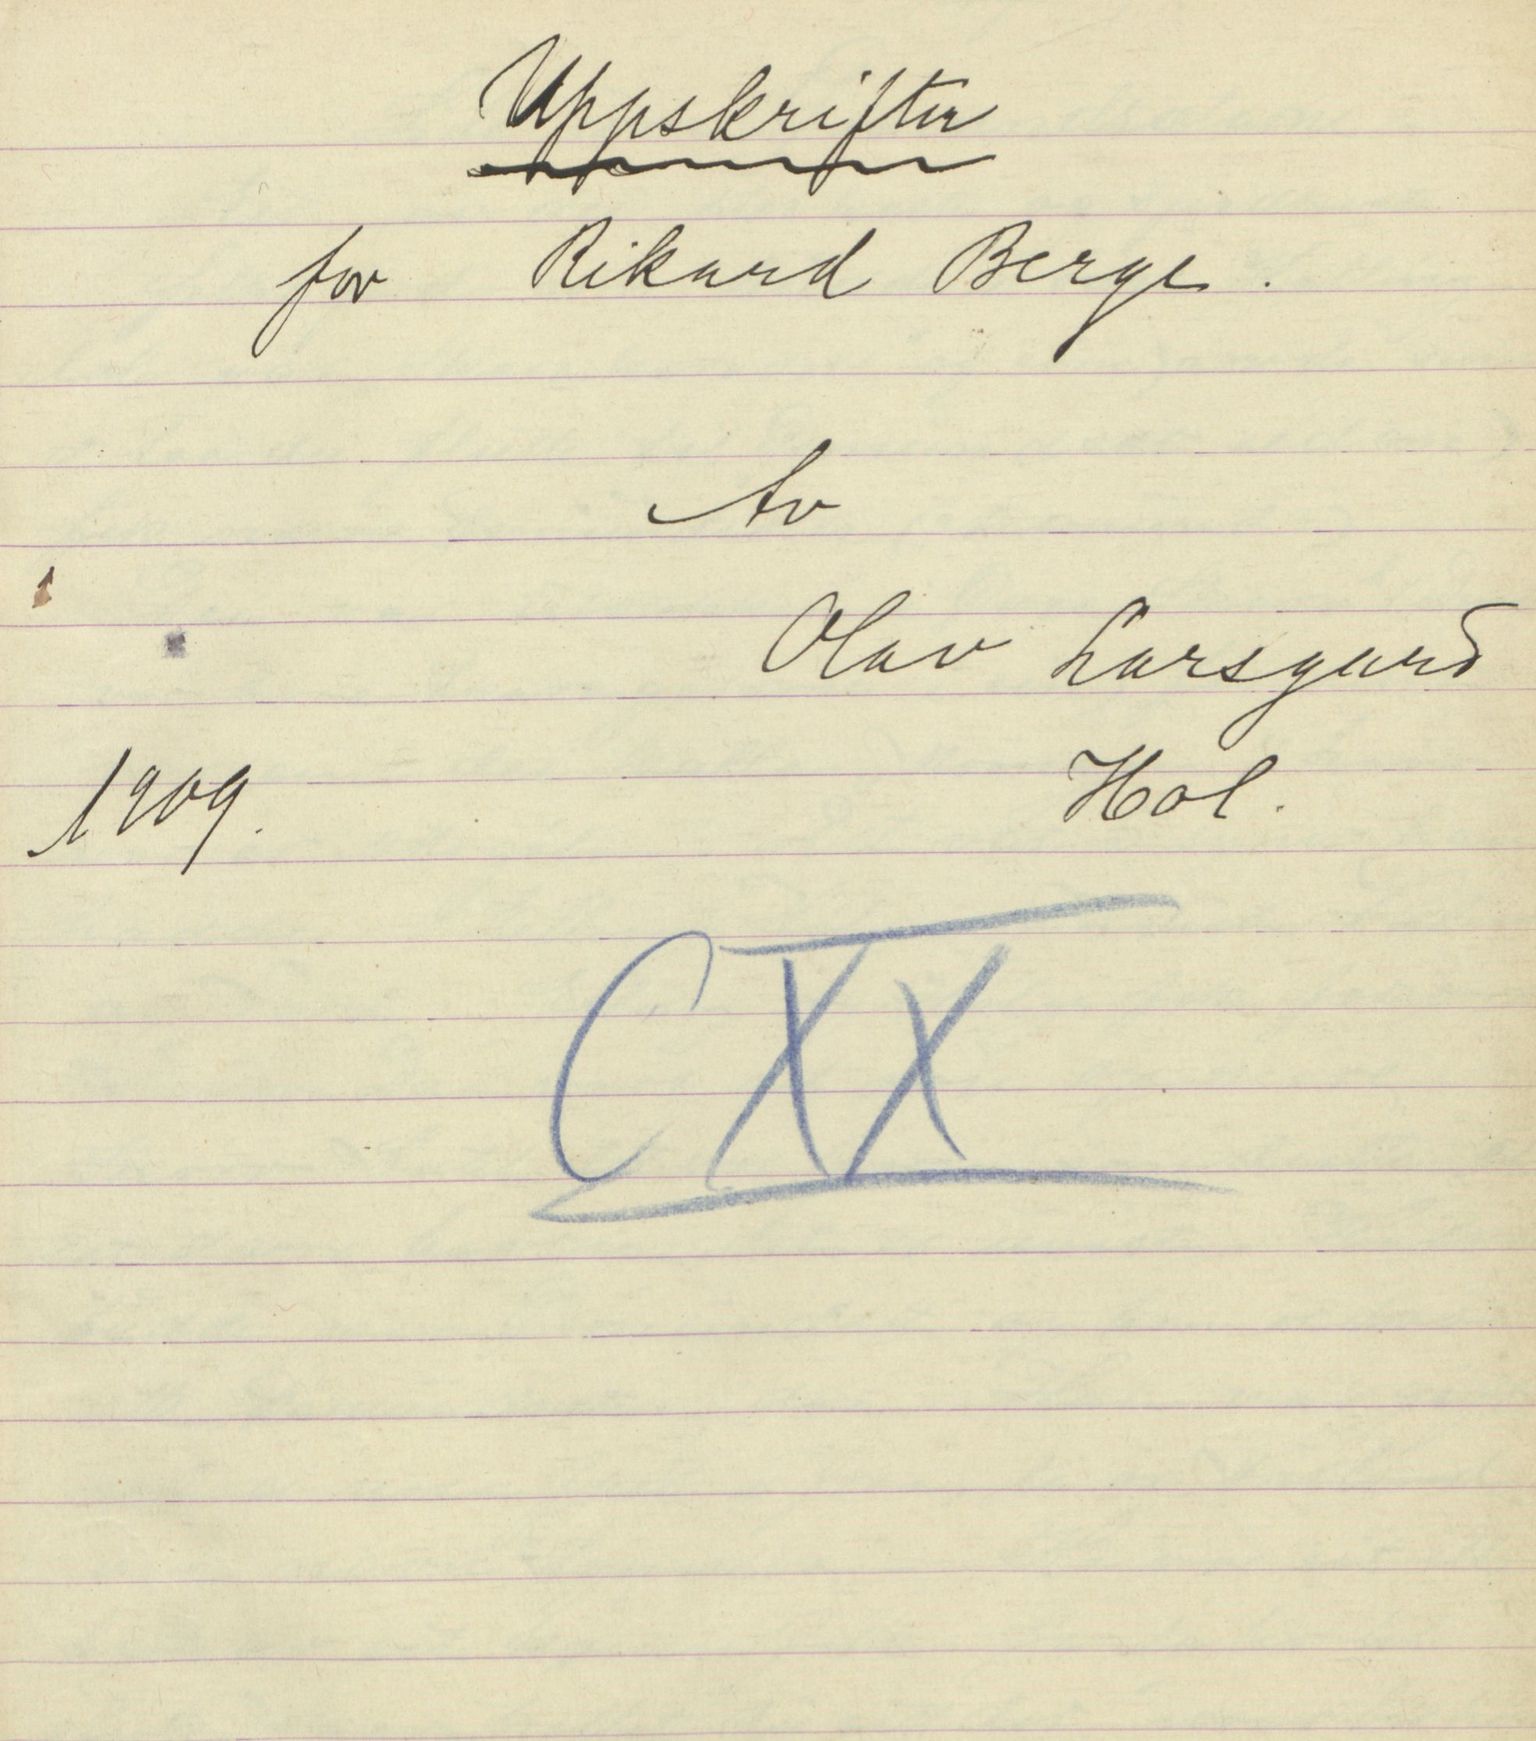 Uppskrifter
for Rikard Berge.
Av
Olav Larsgard
Hol.
1909.
CXX